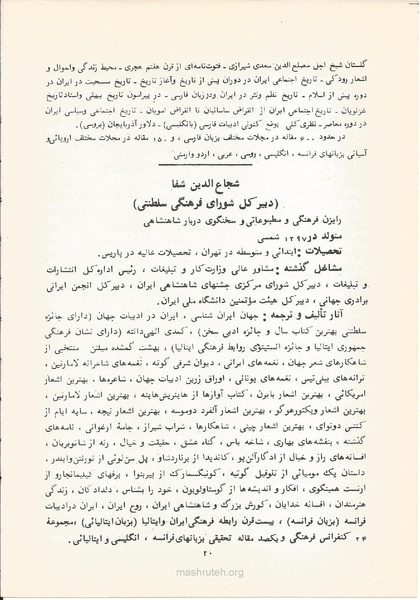 گلستان شیخ اجل مصلح الدین سعدی شیرازی ـ فتوت نامه‌ای از قرن هفتم هجری ـ محیط زندگی واحوال و
اشعار رودکی ـ تاریخ اجتماعی ایران در دوران پیش از تاریخ وآغاز تاریخ ـ تاریخ مسیحیت در ایران در
دوره پیش از اسلام ـ تاریخ نظم ونثر در ایران ودرزبان فارسی ـ در پیرامون تاریخ بیهقی واستادتاریخ
غزنویان ـ تاریخ اجتماعی ایران از انقراض ساسانیان تا انقراض امویان ـ تاریخ اجتماعی وسیاسی ایران
در دوره معاصر ـ نظری کلی بوضع کنونی ادبیات فارسی (بانگلیسی) ـ دلاور آذربایجان (بروسی).
در حدود ۶۰۰ مقاله در مجلات مختلف بزبان فارسی، و ۱۵۰ مقاله در مجلات مختلف اروپائی و
آسیائی بزبانهای فرانسه، انگلیسی، روسی، عربی، اردو وارمنی.
شجاع الدین شفا
(دبیر کل شورای فرهنگی سلطنتی)
رایزن فرهنگی و مطبوعاتی و سخنگوی دربار شاهنشاهی
متولد در ۱۲۹۷ شمسی
تحصیلات: ابتدائی و متوسطه در تهران، تحصیلات عالیه در پاریس.
مشاغل گذشته: مشاور عالی وزارت کار و تبلیغات، رئیس اداره کل انتشارات
و تبلیغات، دبیر کل شورای مرکزی جشنهای شاهنشاهی ایران، دبیر کل انجمن ایرانی
برادری جهانی، دبیر کل هیئت مؤتمنین دانشگاه ملی ایران.
آثار تألیف و ترجمه: جهان ایران شناسی، ایران در ادبیات جهان (دارای جائزه
سلطنتی بهترین کتاب سال و جائزه ادبی سخن)، کمدی الهی دانته (دارای نشان فرهنگی
جمهوری ایتالیا و جائزه انستیتوی روابط فرهنگی ایتالیا)، بهشت گمشده میلتن منتخبی از
شاهکارهای شعر جهان، نغمه‌های ایرانی، دیوان شرقی گوته، نغمه‌های شاعرانه لامارتین،
ترانه‌های بیلی تیس، نغمه‌های یونانی، اوراق زرین ادبیات جهان، شاعره‌ها، بهترین اشعار
امریکائی، بهترین اشعار بایرن، کتاب آوازها از هاینریش هاینه، بهترین اشعار لامارتین،
بهترین اشعار ویکتورهوگو، بهترین اشعار آلفرد دوموسه، بهترین اشعار نیچه، سایه ایام از
کنتس دونوای، بهترین اشعار چینی، شاهکارها، شراب شیراز، جامهٔ ارغوانی، نامه‌های
گذشته، بنفشه‌های بهاری، شاخه یاس، گناه عشق، حقیقت و خیال، رنه از شاتوبریان،
افسانه‌های راز و خیال از ادگارآلن پو، کاندیدا از برناردشاو، پل سن لوئی از تورنتن وایلدر،
داستان یک مومیائی از تئوفیل گوتیه، کونیگسمارک از پیربنوا، برفهای کیلیمانجارو از
ارنست همینگوی، افکار و اندیشه‌ها از گوستاولوبون، خود را بشناس، دلدادگان، زندگی
هنرمندان، افسانه خدایان، کورش بزرگ و شاهنشاهی ایران، روح ایران، ایران در ادبیات
فرانسه (بزبان فرانسه)، بیست قرن رابطه فرهنگی ایران وایتالیا (بزبان ایتالیائی)، مجموعهٔ
۲۴ کنفرانس فرهنگی و یکصد مقاله تحقیقی بزبانهای فرانسه، انگلیسی و ایتالیائی.
۲۰
mashruteh.org